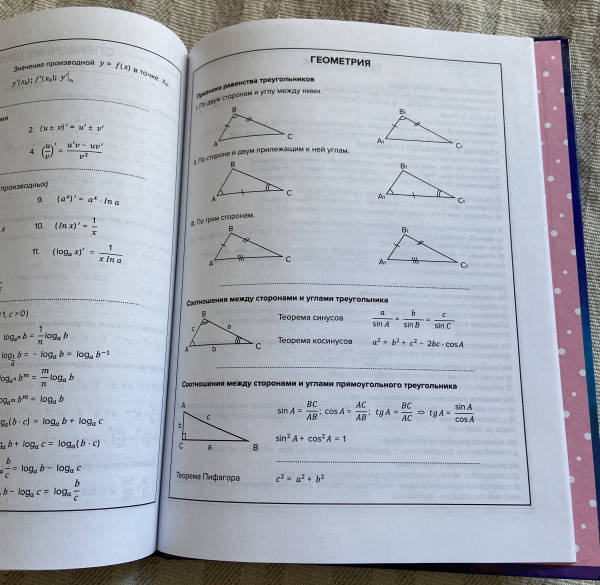 Значение производной y = f(x) в точке x₀:
y'(x₀); f'(x₀); y'|ₓ₀
2. (u ± v)' = u' ± v'
4. (u/v)' = (u'v − uv')/v²
производных)
9. (aˣ)' = aˣ · ln a
10. (ln x)' = 1/x
11. (logₐ x)' = 1/(x ln a)
1, c > 0)
b = 1/n logₐ b
b = − logₐ b = logₐ b⁻¹
bᵐ = m/n logₐ b
bᵐ = logₐ b
(b · c) = logₐ b + logₐ c
b + logₐ c = logₐ (b · c)
b/c = logₐ b − logₐ c
b − logₐ c = logₐ b/c
ГЕОМЕТРИЯ
Признаки равенства треугольников
I. По двум сторонам и углу между ними.
B B₁
A C A₁ C₁
II. По стороне и двум прилежащим к ней углам.
B B₁
A C A₁ C₁
III. По трем сторонам.
B B₁
A C A₁ C₁
Соотношения между сторонами и углами треугольника
B
c a
A b C
Теорема синусов a/sin A = b/sin B = c/sin C
Теорема косинусов a² = b² + c² − 2bc · cosA
Соотношения между сторонами и углами прямоугольного треугольника
A
b c
C a B
sin A = BC/AB; cos A = AC/AB; tg A = BC/AC ⇒ tg A = sin A/cos A
sin² A + cos² A = 1
Теорема Пифагора c² = a² + b²